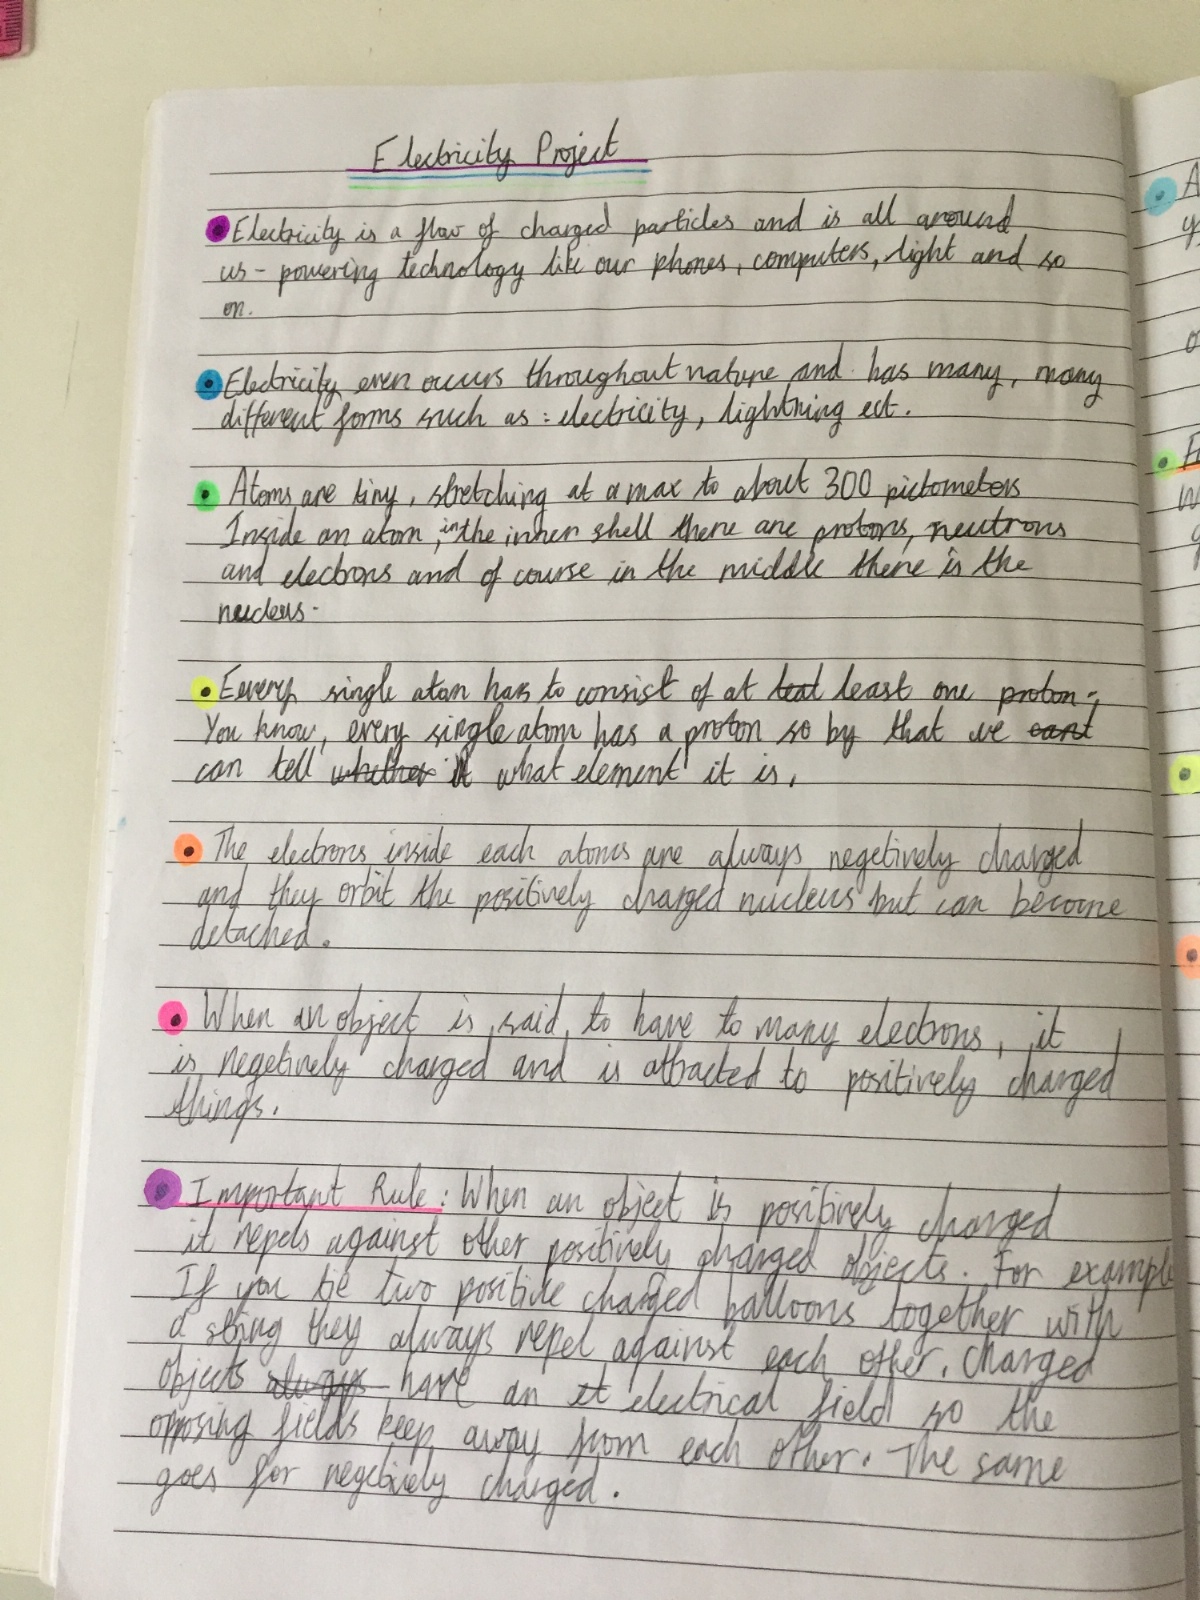 Electricity Project
Electricity is a flow of charged particles and is all around
us - powering technology like our phones, computers, light and so
on.
Electricity even occurs throughout nature and has many, many
different forms such as : electricity, lightning ect.
Atoms are tiny, stretching at a max to about 300 pictometers
Inside an atom, in the inner shell there are protons, neutrons
and electrons and of course in the middle there is the
nucleus.
Eevery single atom has to consist of at least one proton -
You know, every single atom has a proton so by that we
can tell what element it is.
The electrons inside each atoms are always negetively charged
and they orbit the positively charged nucleus but can become
detached.
When an object is said to have to many electrons, it
is negetively charged and is attracted to positively charged
things.
Important Rule: When an object is positively charged
it repels against other positively charged objects. For example
If you tie two positive charged balloons together with
a string they always repel against each other. Charged
objects always have an et electrical field so the
opposing fields keep away from each other. The same
goes for negetively charged.